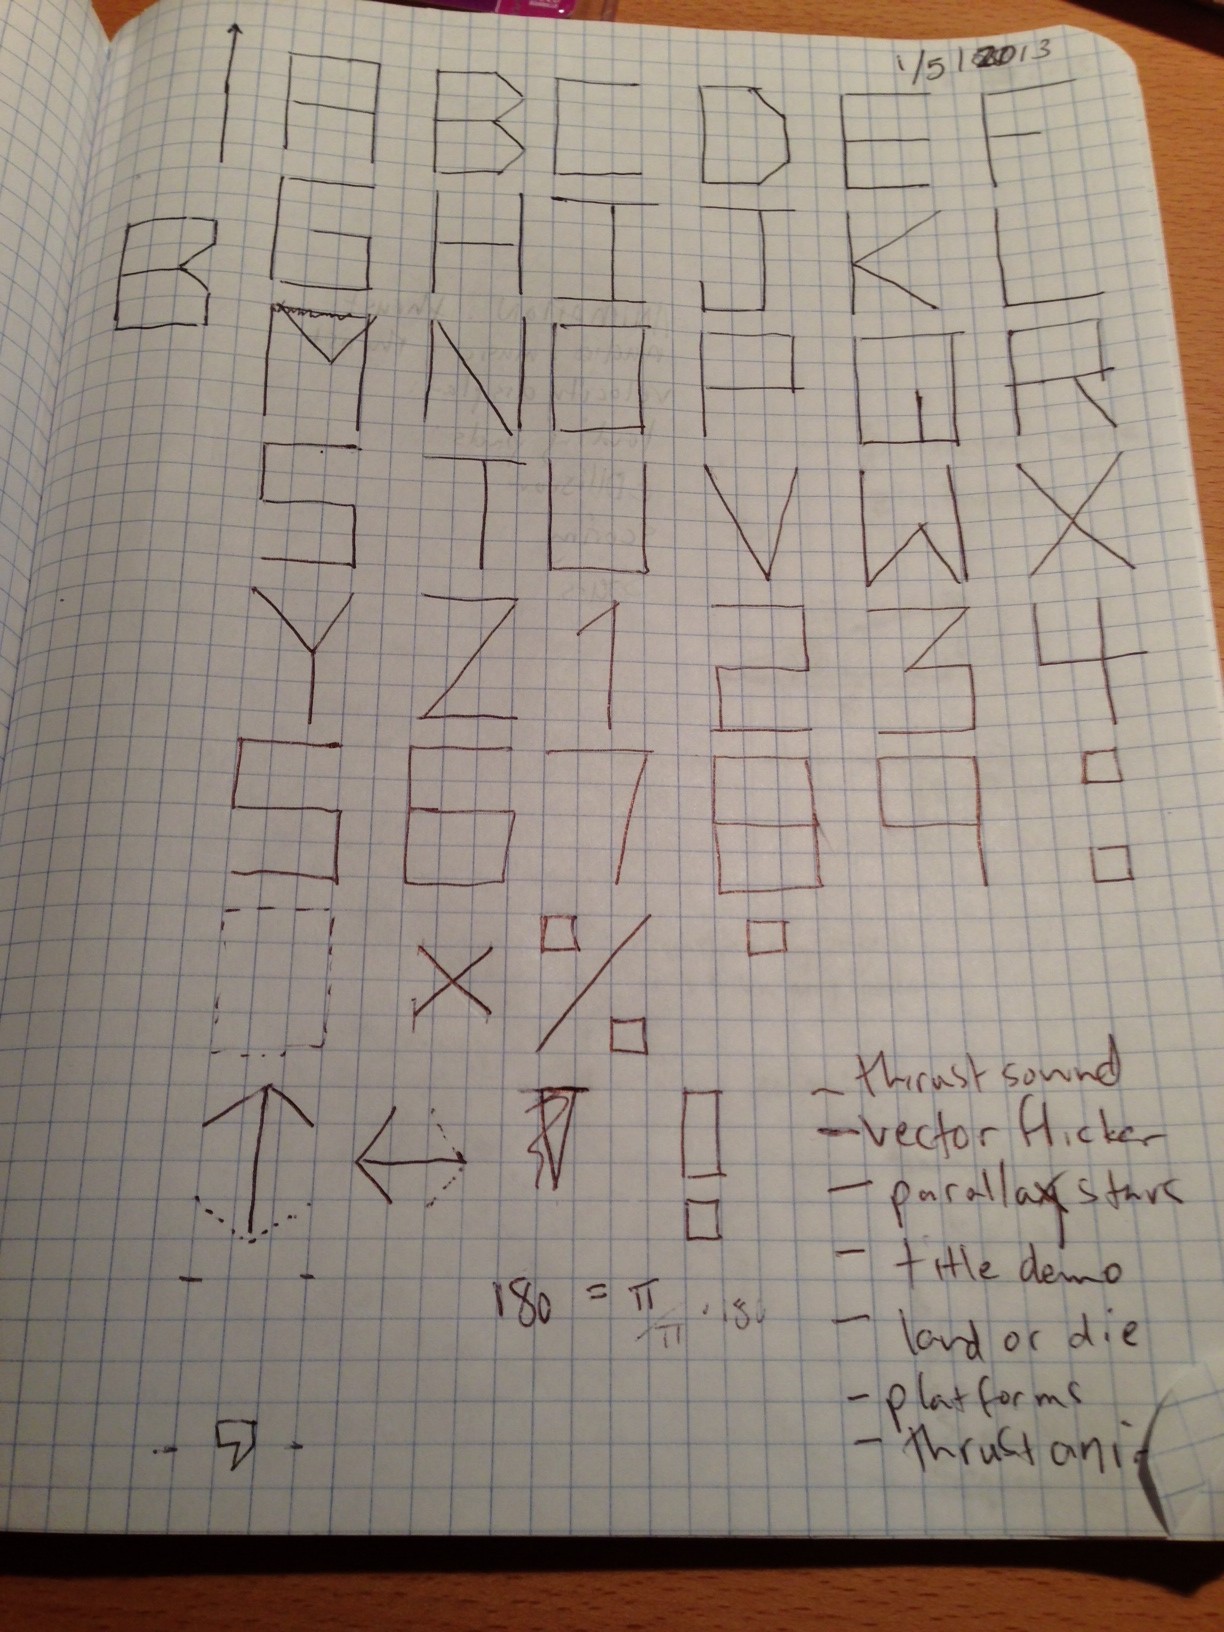 1/5/2013
A B C D E F
B G H I J K L
M N O P Q R
S T U V W X
Y Z 1 2 3 4
5 6 7 8 9 :
x % .
↑ ← !
- thrust sound
- vector flicker
- parallax stars
- title demo
180 = π/π · 180
- land or die
- platforms
- thrust ani